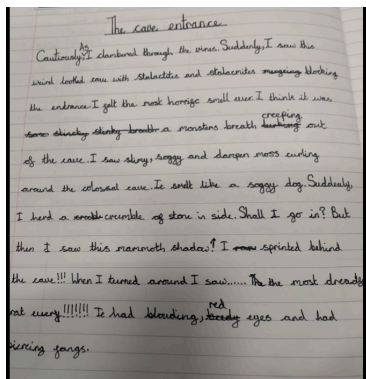 The cave entrance
Cautiously, As I clambured through the vines. Suddenly, I saw this
weird looked cave with stalactites and stalacmites blocking
the entrance. I felt the most horrific smell ever. I think it was
some stincky stinky breath a monsters breath creeping out
of the cave. I saw slimy, soggy and dampen moss curling
around the colossal cave. It smelt like a soggy dog. Suddenly,
I herd a crumble of stone in side. Shall I go in? But
then I saw this mammoth shadow! I sprinted behind
the cave!!! When I turned around I saw...... The the most dreads
rat every!!!!!!! It had blouding, red eyes and had
piercing fangs.